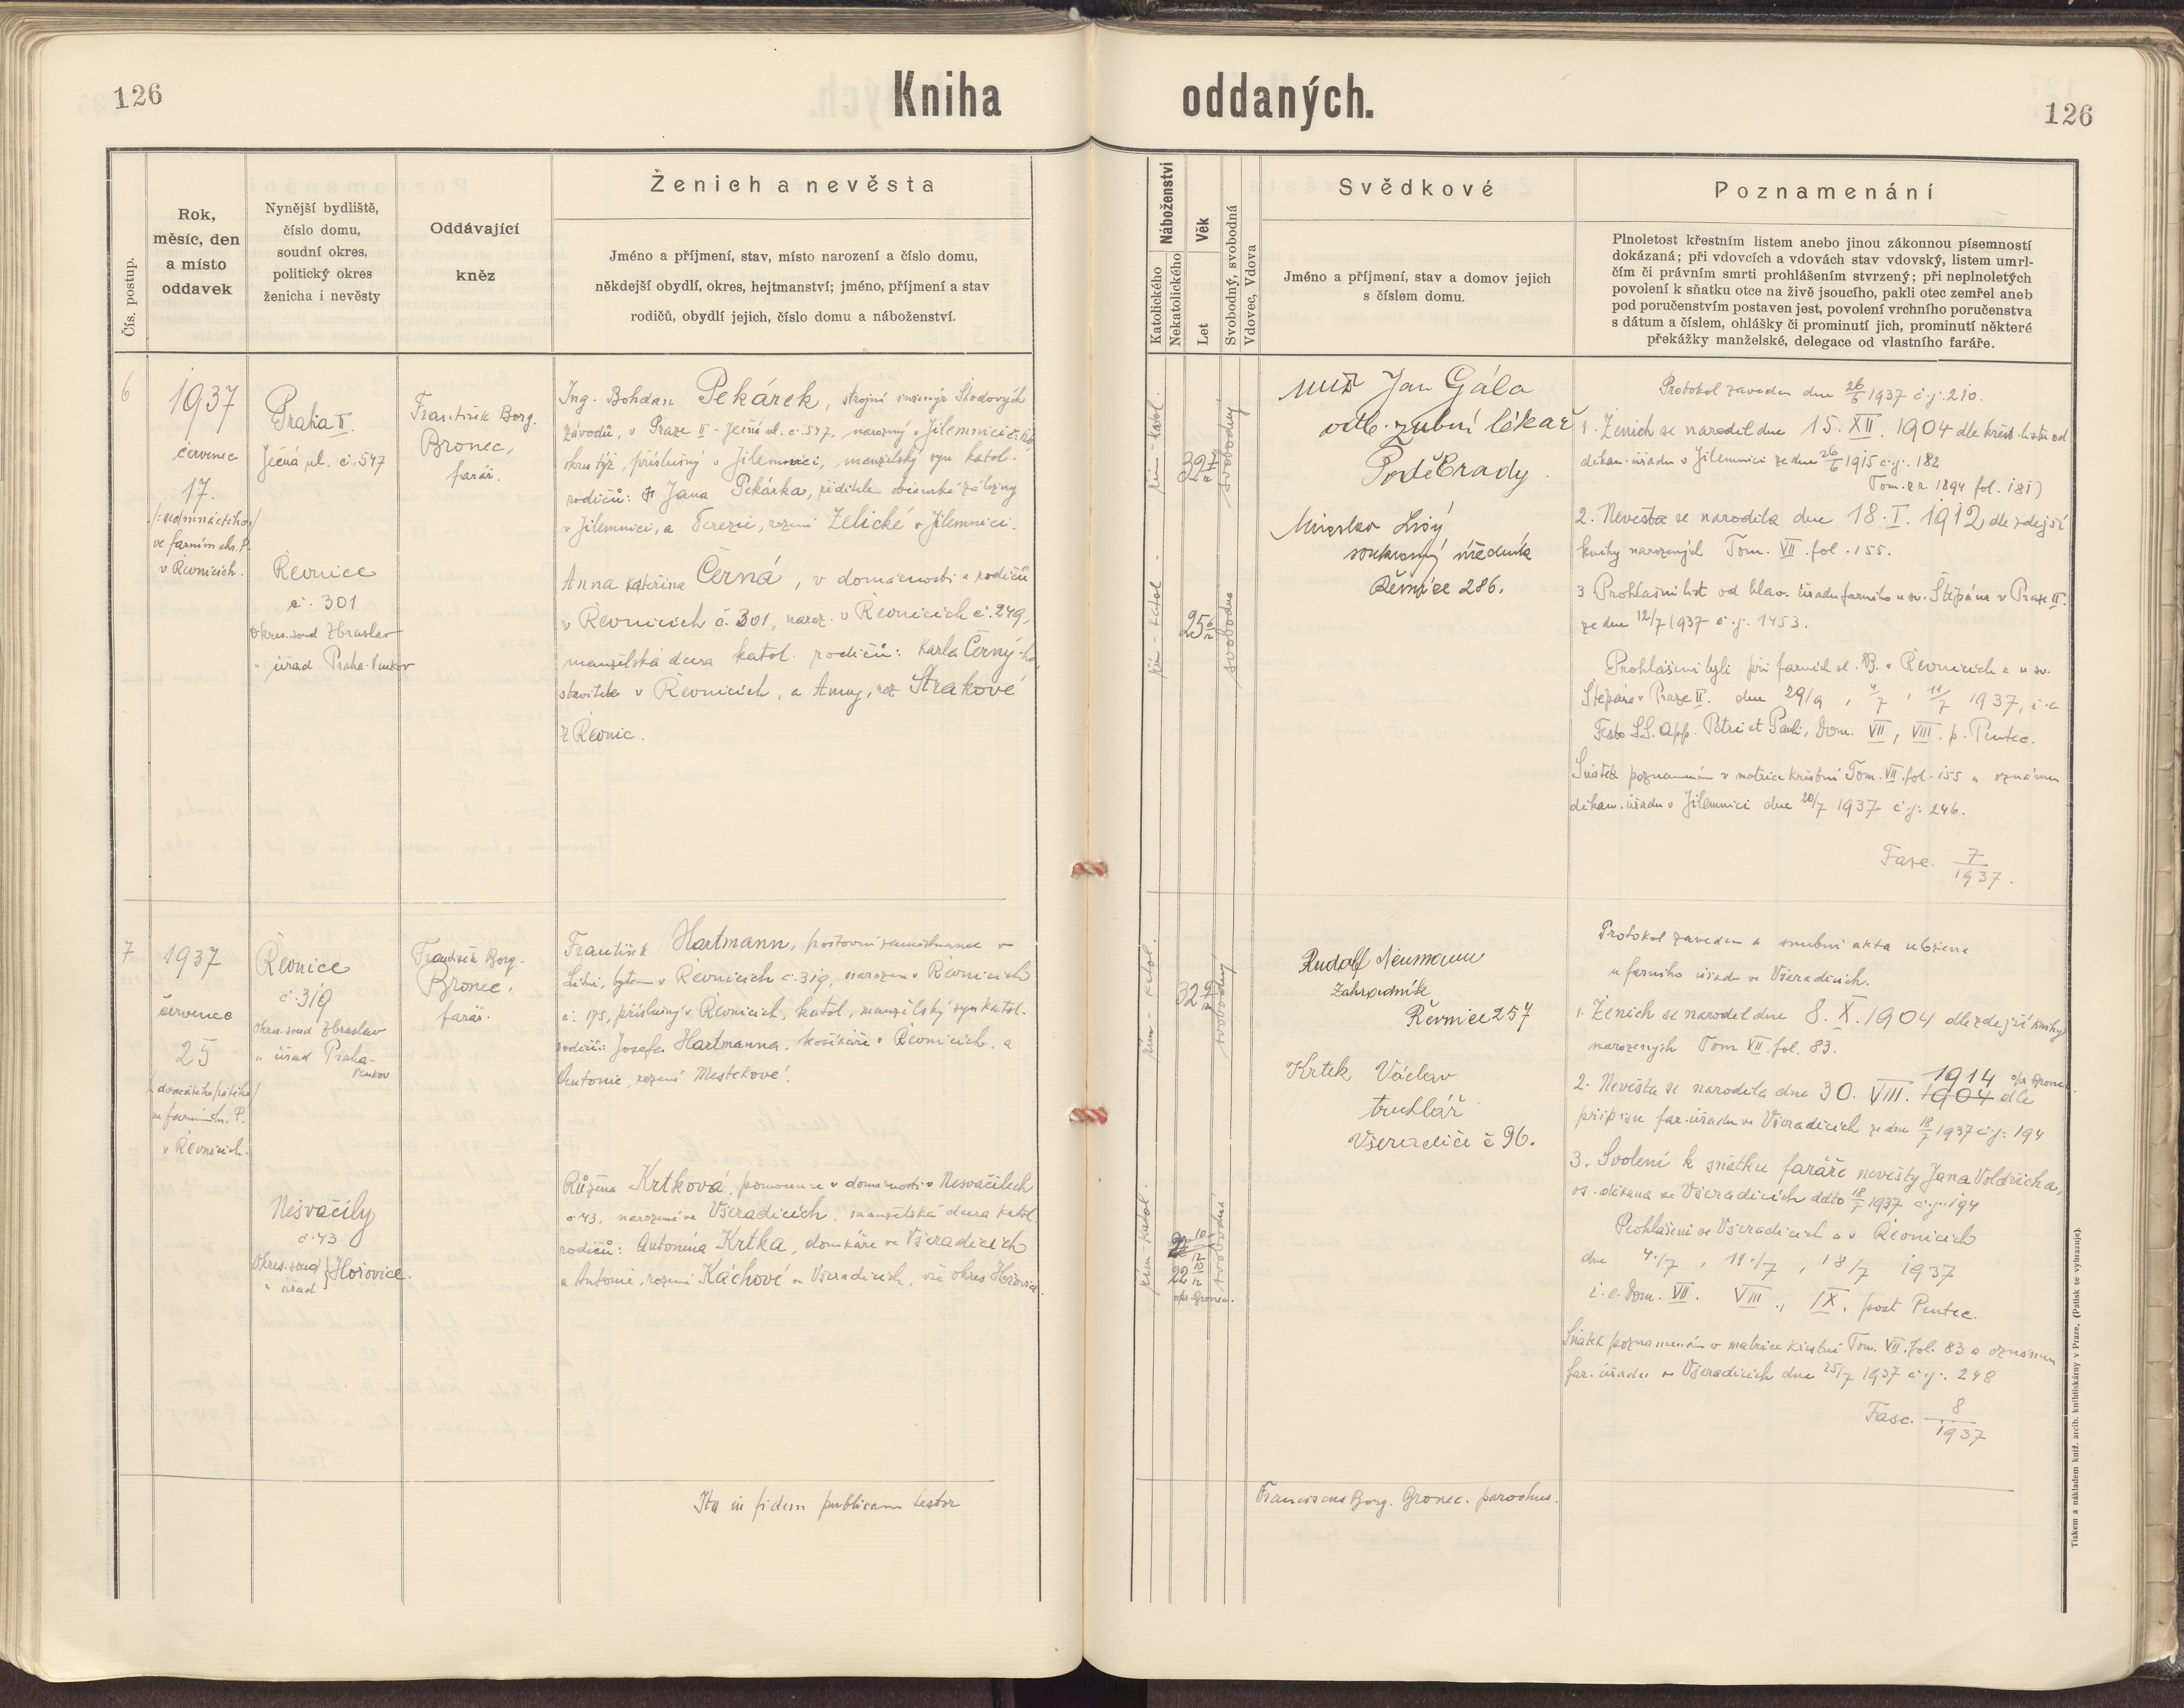 126
Kniha oddaných.
126
Čís. postup.
Rok,
měsíc, den
a místo
oddavek
Nynější bydliště,
číslo domu,
soudní okres,
politický okres
ženicha i nevěsty
Oddávající
kněz
Ženich a nevěsta
Jméno a příjmení, stav, místo narození a číslo domu,
někdejší obydlí, okres, hejtmanství; jméno, příjmení a stav
rodičů, obydlí jejich, číslo domu a náboženství.
Náboženství
Katolického
Nekatolického
Věk
Let
Svobodný, svobodná
Vdovec, Vdova
Svědkové
Jméno a příjmení, stav a domov jejich
s číslem domu.
Poznamenání
Plnoletost křestním listem anebo jinou zákonnou písemností
dokázaná; při vdovcích a vdovách stav vdovský, listem umrl-
čím či právním smrti prohlášením stvrzený; při neplnoletých
povolení k sňatku otce na živě jsoucího, pakli otec zemřel aneb
pod poručenstvím postaven jest, povolení vrchního poručenstva
s dátum a číslem, ohlášky či prominutí jich, prominutí některé
překážky manželské, delegace od vlastního faráře.
6
1937
červenec
17.
/:sedmnáctého:/
ve farním chr. P.
v Řevnicích.
Praha II.
Ječná ul. č. 547
Řevnice
č. 301
okres. soud Zbraslav
" úřad Praha-Venkov
František Borg.
Bronec,
farář.
Ing. Bohdan Pekárek, strojní inženýr Škodových
závodů, v Praze II - Ječná ul. č. 547, narozený v Jilemnici č.
okres týž, příslušný v Jilemnici, manželský syn katol.
rodičů: Jana Pekárka, ředitele občanské záložny
v Jilemnici, a Terezie, rozené Zelické v Jilemnici.
Anna Kateřina Černá, v domácnosti u rodičů
v Řevnicích č. 301, naroz. v Řevnicích č. 249,
manželská dcera katol. rodičů: Karla Černý-ho,
stavitele v Řevnicích, a Anny, roz. Strakové
z Řevnic.
řím - katol.
32 7/12
svobodný
řím - katol.
25 6/12
svobodná
MUDr Jan Gála
odb. zubní lékař
Poděbrady
Miroslav Lisý
soukromý úředník
Řevnice 286.
Protokol zaveden dne 26/6 1937 č.j. 210.
1. Ženich se narodil dne 15. XII. 1904 dle křest. listu od
děkan. úřadu v Jilemnici ze dne 26/6 1915 č.j. 182
Tom. z r. 1894 fol. 181)
2. Nevěsta se narodila dne 18. I. 1912 dle zdejší
knihy narozených Tom. VII. fol. 155.
3 Prohlášní list od hlav. úřadu farního u sv. Štěpána v Praze II.
ze dne 12/7 1937 č.j. 1453.
Prohlášeni byli při farních sl. B. v Řevnicích a u sv.
Štěpána v Praze II. dne 29/9, 4/7, 11/7 1937, i.e.
Festo SS. App. Petri et Pauli, Dom. VII, VIII. p. Pentec.
Sňatek poznamenán v matrice křestní Tom. VII. fol. 155 a oznámen
děkan. úřadu v Jilemnici dne 20/7 1937 č.j. 246.
Fasc. 7/1937.
7
1937
červenec
25
/dvacátého pátého/
ve farním ch. P.
v Řevnicích.
Řevnice
č. 319
okres. soud Zbraslav
" úřad Praha-
Venkov
Nesvačily
č. 43
Okres. soud } Hořovice.
" úřad
František Borg.
Bronec,
farář.
František Hartmann, poštovní zaměstnanec v
Litni, bytem v Řevnicích č. 319, narozen v Řevnicích
č. 175, příslušný v Řevnicích, katol., manželský syn katol.
rodičů: Josefa Hartmanna, košíkáře v Řevnicích, a
Antonie, rozené Mestekové.
Růžena Krtková, pomocnice v domácnosti v Nesvačilech
č. 43, narozená ve Všeradicích, manželská dcera katol.
rodičů: Antonína Krtka, domkáře ve Všeradicích
a Antonie, rozené Káchové ve Všeradicích, vše okres Hořovice.
řím - katol.
32 9/12
svobodný
řím - katol.
22 10/12
22 10/12
opr. Bronec.
svobodná
Rudolf Neumann
Zahradník
Řevnice 257
Krtek Václav
truhlář
Všeradice č 96.
Protokol zaveden a snubní akta uložena
u farního úřadu ve Všeradicích.
1. Ženich se narodil dne 8. X. 1904 dle zdejší knihy
narozených Tom VII. fol. 83.
2. Nevěsta se narodila dne 30. VIII. 1904 1914 opr. Bronec. dle
přípisu far. úřadu ve Všeradicích ze dne 18/7 1937 č.j: 194
3. Svolení k sňatku faráře nevěsty Jana Voldřicha,
os. děkana ve Všeradicích ddto 18/7 1937 č.j. 194
Prohlášeni ve Všeradicích a v Řevnicích
dne 4./7, 11./7, 18/7 1937
i.e. Dom. VII. VIII., IX. post Pentec.
Sňatek poznamenán v matrice křestní Tom. VII. fol. 83 a oznámen
far. úřadu ve Všeradicích dne 25/7 1937 č.j.. 248
Fasc. 8/1937
Ita in fidem publicam testor
Franciscus Borg. Bronec. parochus.
Tiskem a nákladem kníž. arcib. knihtiskárny v Praze. (Patisk se vyhrazuje)